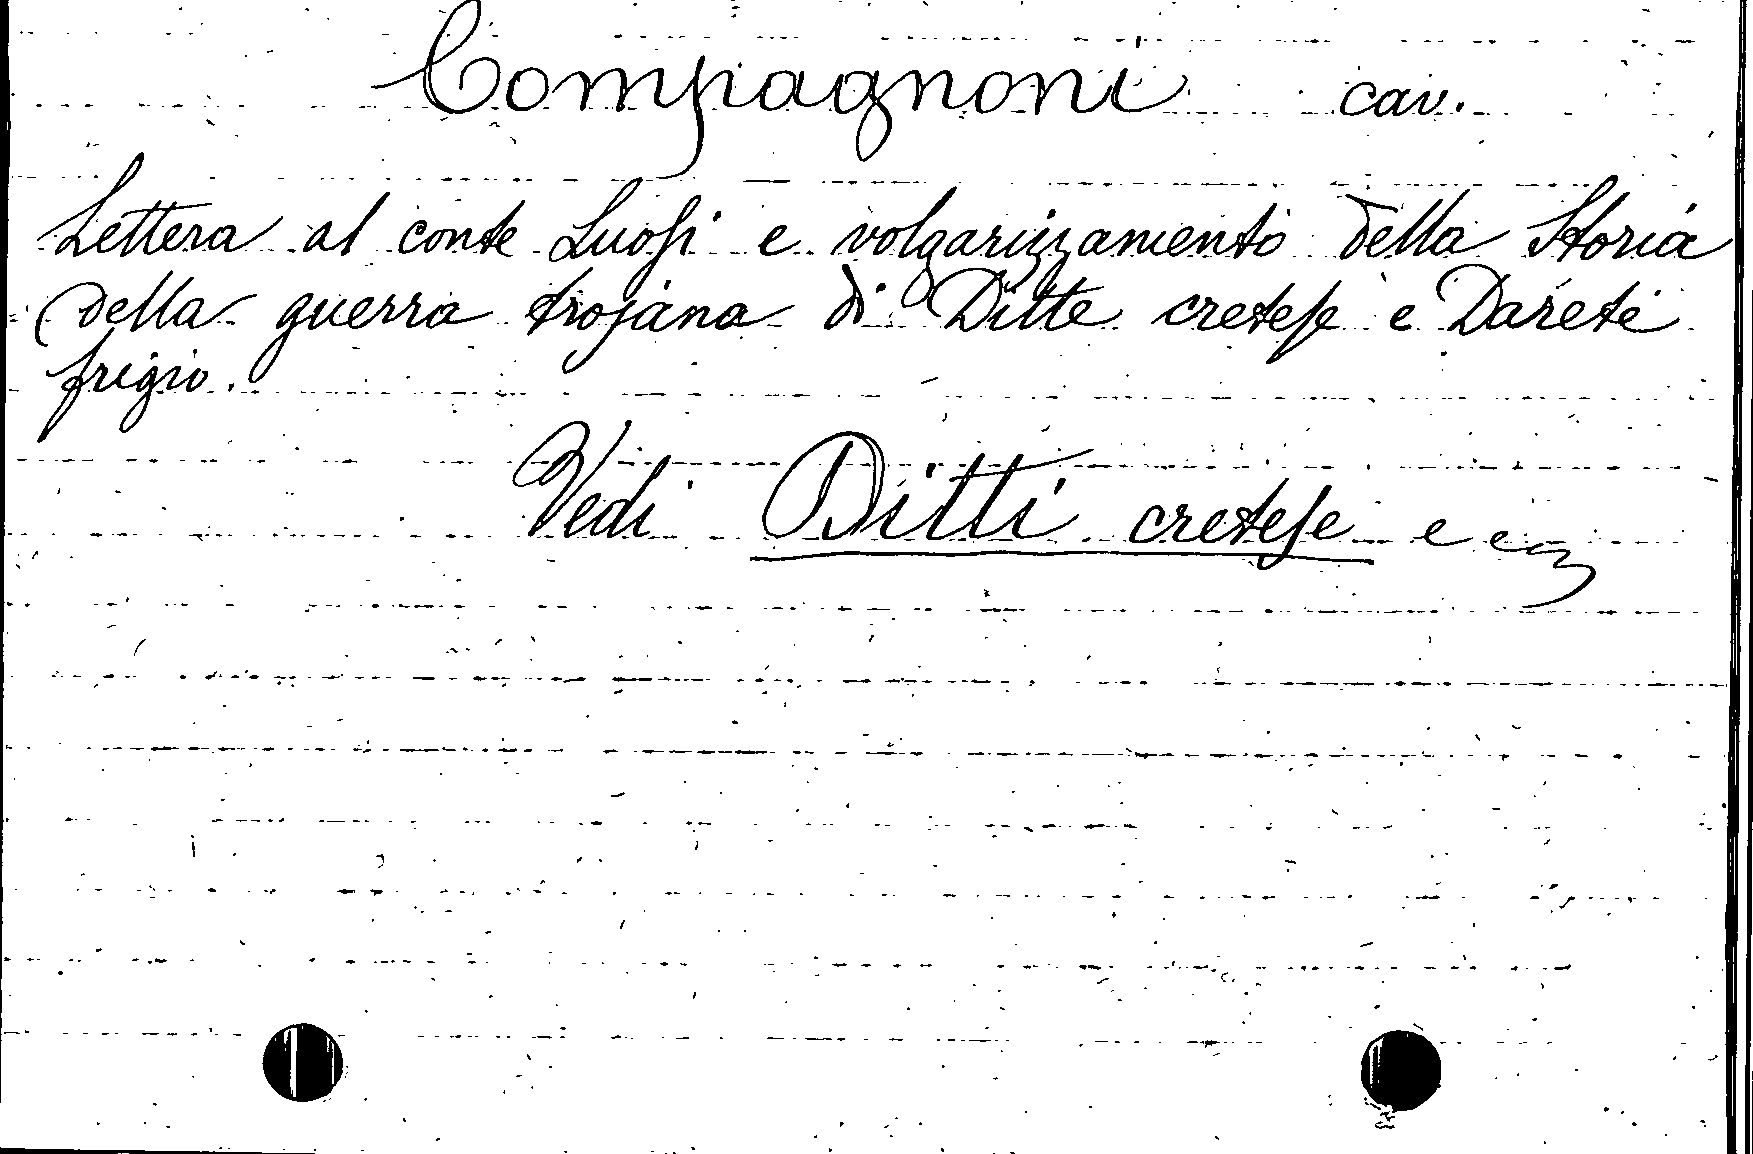 Compagnoni cav.
Lettera al conte Luosi e volgarizzamento della Storia
della guerra trojana di Ditte cretese e Darete
frigio.
Vedi Ditti cretese e